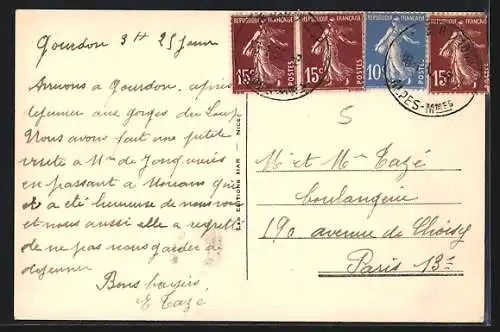 Gourdon 3 H 25 Janv
Arrivons à Gourdon, après
déjeuner aux gorges du Loup
Nous avons fait une petite
visite à Mme de
en passant à Mouans qui
a été heureuse de nous voir
et nous aussi elle a regretté
de ne pas nous garder à
déjeuner
Bons baisers
E Tazé
LES EDITIONS MAR - NICE
RÉPUBLIQUE FRANÇAISE 15c POSTES
RÉPUBLIQUE FRANÇAISE 15c POSTES
RÉPUBLIQUE FRANÇAISE 10c POSTES
RÉPUBLIQUE FRANÇAISE 15c POSTES
ALPES-MMES
5
Mr et Mme Tazé
boulangerie
190 avenue de Choisy
Paris 13e